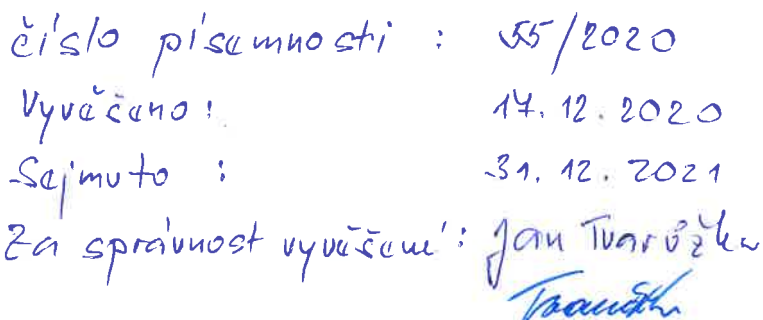 číslo písemnosti : 55/2020
Vyvěšeno : 17.12.2020
Sejmuto : 31.12.2021
Za správnost vyvěšení : Jan Tvarůžka